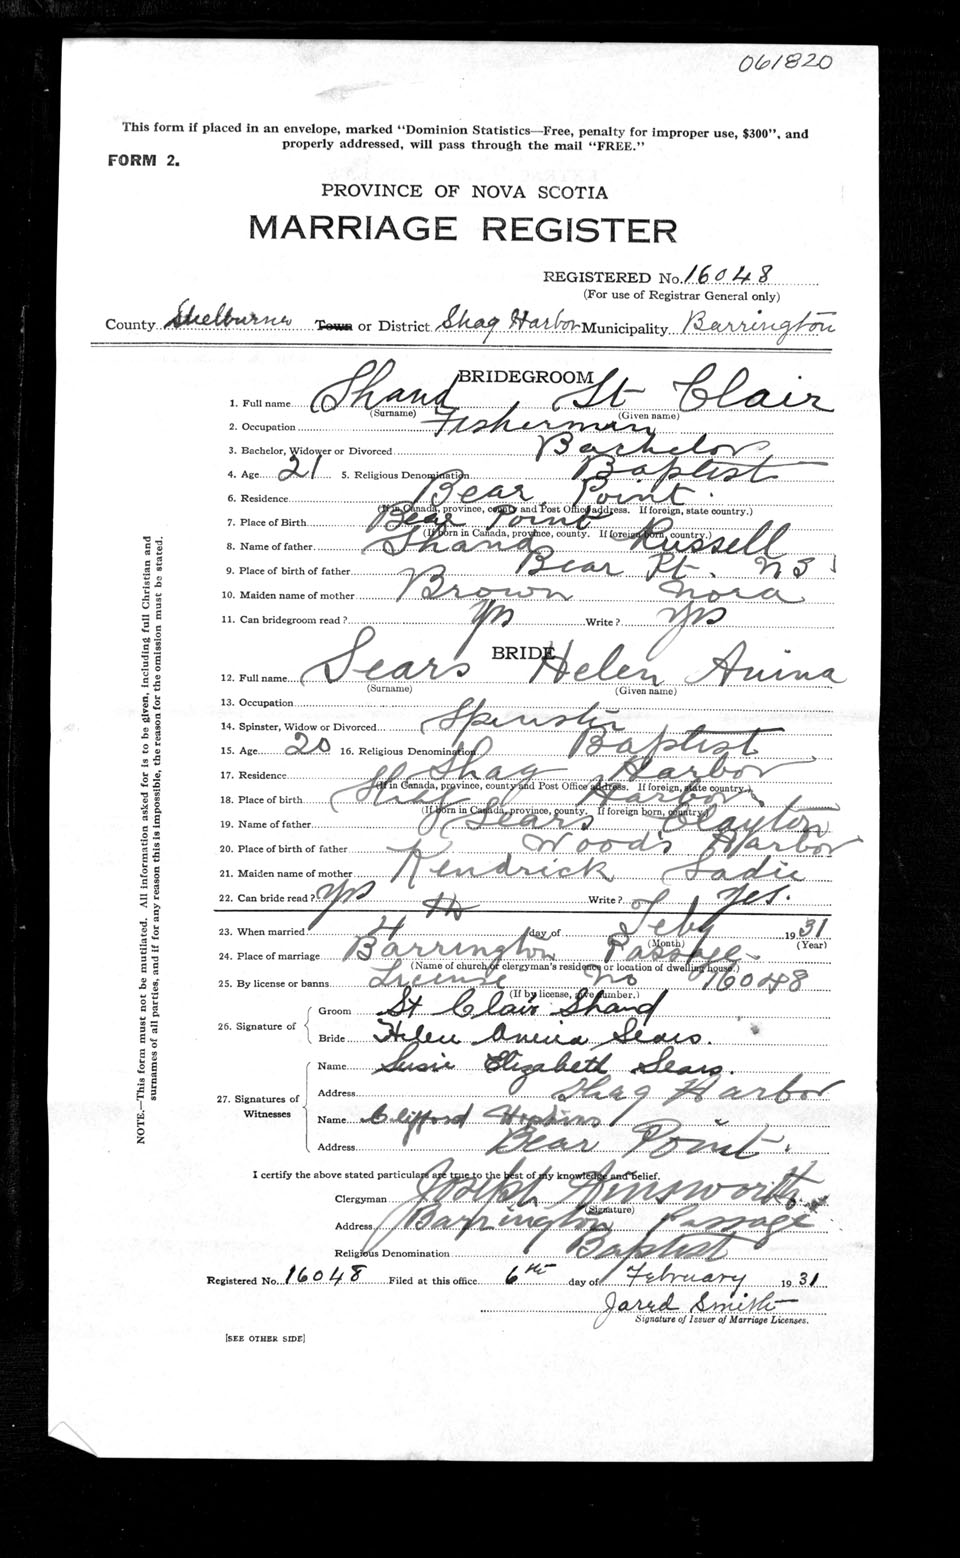 061820
This form if placed in an envelope, marked "Dominion Statistics—Free, penalty for improper use, $300", and
properly addressed, will pass through the mail "FREE."
FORM 2.
PROVINCE OF NOVA SCOTIA
MARRIAGE REGISTER
REGISTERED No. 16048
(For use of Registrar General only)
County Shelburne Town or District Shag Harbor Municipality Barrington
BRIDEGROOM
1. Full name Shand St Clair
(Surname) (Given name)
2. Occupation Fisherman
3. Bachelor, Widower or Divorced Bachelor
4. Age 21 5. Religious Denomination Baptist
6. Residence Bear Point.
(If in Canada, province, county and Post Office address. If foreign, state country.)
7. Place of Birth Bear Point
(If born in Canada, province, county. If foreign born, country.)
8. Name of father Shand Russell
9. Place of birth of father Bear Pt. N S
10. Maiden name of mother Brown Nora
11. Can bridegroom read? Yes Write? Yes
BRIDE
12. Full name Sears Helen Anina
(Surname) (Given name)
13. Occupation
14. Spinster, Widow or Divorced Spinster
15. Age 20 16. Religious Denomination Baptist
17. Residence Shag Harbor
(If in Canada, province, county and Post Office address. If foreign, state country.)
18. Place of birth Shag Harbor
(If born in Canada, province, county. If foreign born, country.)
19. Name of father Sears Clayton
20. Place of birth of father Wood's Harbor
21. Maiden name of mother Kendrick Sadie
22. Can bride read? Yes Write? Yes.
23. When married 4 th day of Feby 1931
(Month) (Year)
24. Place of marriage Barrington Passage
(Name of church or clergyman's residence or location of dwelling house.)
25. By license or banns License No 16048
(If by license, give number.)
26. Signature of
Groom St Clair Shand
Bride Helen Anina Sears.
27. Signatures of Witnesses
Name Susie Elizabeth Sears.
Address Shag Harbor
Name Clifford Hopkins
Address Bear Point.
I certify the above stated particulars are true to the best of my knowledge and belief.
Clergyman Joseph Ainsworth
(Signature)
Address Barrington Passage
Religious Denomination Baptist
Registered No. 16048 Filed at this office 6th day of February 1931
Jared Smith
Signature of Issuer of Marriage Licenses.
[SEE OTHER SIDE]
NOTE.—This form must not be mutilated. All information asked for is to be given, including full Christian and
surnames of all parties, and if for any reason this is impossible, the reason for the omission must be stated.